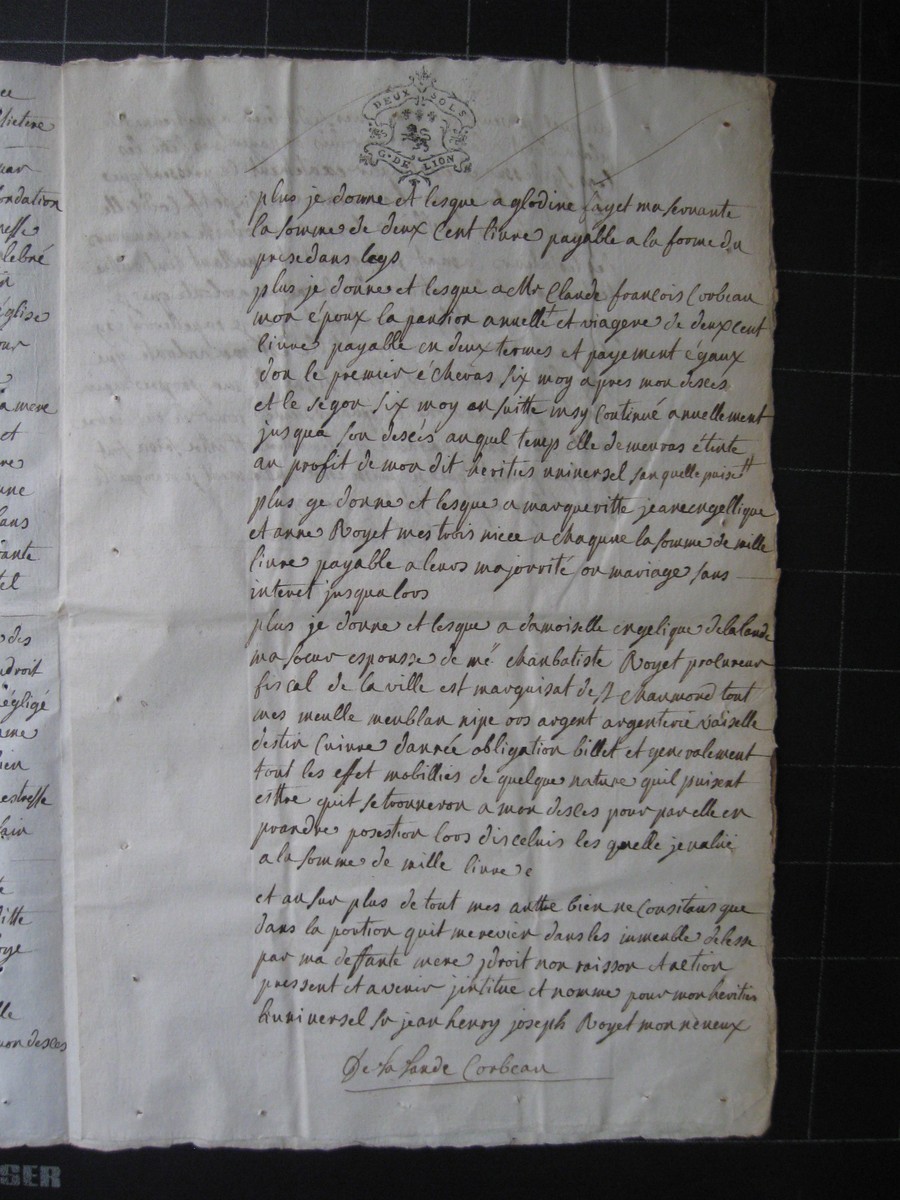 DEUX SOLS
G. DE LION
plus je donne et lesque a glodine fayet ma servante
la somme de deux cent livre payable a la forme du
presedans legs
plus je donne et lesque a Mr Claude francois Corbeau
mon époux la pansion annuelle et viagere de deux cent
livre payable en deux termes et payement égaux
don le premier écheras six moy apres mon desces
et le segon six moy en suitte insy continué annuellement
jusqua son desces auquel temps elle demeuras étinte
au profit de mon dit heritier universel san quelle puise
plus ge donne et lesque a margueritte jeane engellique
et anne Royet mes trois niece a chaqune la somme de mille
livre payable a leurs majorité ou mariage sans
interet jusqua lors
plus je donne et lesque a damoiselle engelique delalande
ma soeur espousse de me chanbatiste Royet procureur
fiscal de la ville est marquisat de st chaumond tout
mes meulle meublan nipe oos argent argenterie vaiselle
destin Cuivre danrée obligation billet et generalement
tout les effet mobillies de quelque nature quil puisent
esttre quit se trouneron a mon desces pour par elle en
prandre posestion loos discelui les quelle jevalüé
a la somme de mille livre
et au sur plus de tout mes auttre bien ne consitans que
dans la portion quit me revien dans les immeuble delesse
par ma deffante mere droit non raisson et action
pressent et avenir jintitue et nomme pour mon heritier
universel sr jean henry joseph Royet mon neveux
De la lande Corbeau
ce
ondation
lebré
église
our
a mere
et
une
lans
tel
des
droit
égligé
ien
mon desces
SER